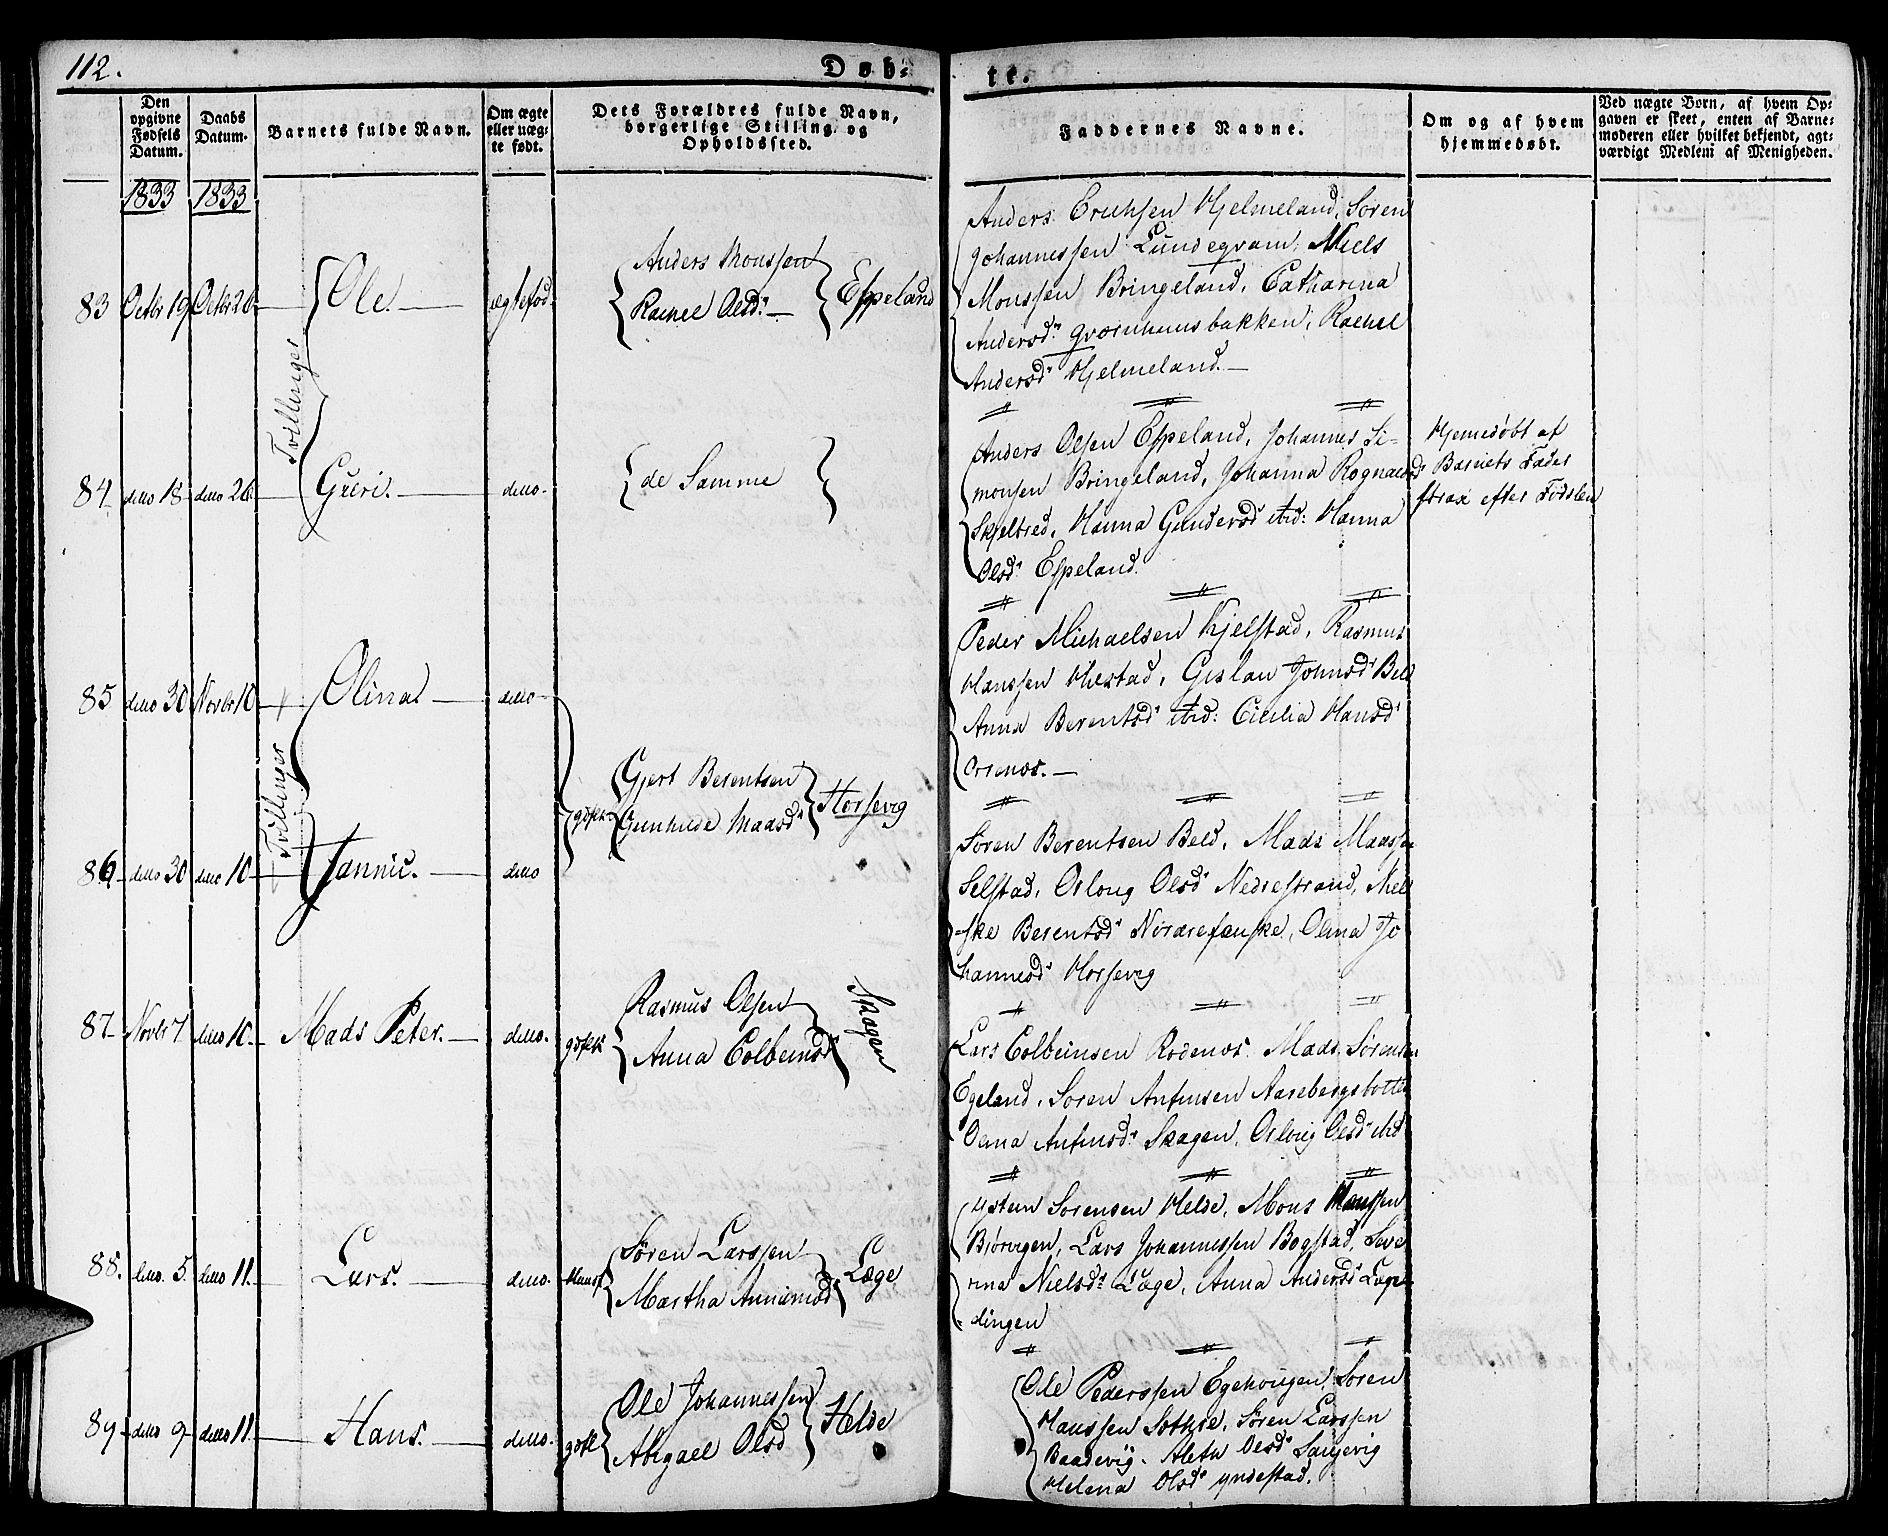 112.
Døb-
te.
Den opgivne Fødsels Datum.
Daabs Datum.
Barnets fulde Navn.
Om ægte eller uægte født.
Dets Forældres fulde Navn, borgerlige Stilling og Opholdssted.
Faddernes Navne.
Om og af hvem hjemmedøbt.
Ved uægte Børn, af hvem Opgaven er skeet, enten af Barnemoderen eller hvilket bekjendt, agtværdigt Medlem af Menigheden.
1833 1833
83 Octbr 19 Octbr 26 Ole. ægtefød.
Tvillinger
Anders Monssen
Rachel Olsd. Espeland
Anders Erichsen Hjelmeland, Søren
Johannessen Lundegram, Niels
Monssen Bringeland, Catharina
Andersd. Qværnhuusbakken, Rachel
Andersd. Hjelmeland.
84 ditto 18 ditto 26 Guri. ditto.
de Samme
Anders Olsen Espeland, Johannes Si-
monsen Bringeland, Johanna Rognaldsd
Skjelbred, Hanna Gundersd ibid: Hanna
Olsd. Espeland.
Hjemedøbt af
Barnets Fader
strax efter Fødslen
85 ditto 30 Novbr 10 Olina ditto
Tvillinger
Gjert Berentsen
Gunhilde Maasd Horsevig
Peder Michaelsen Kjelstad, Rasmus
Hanssen Hestad, Gislau Johnsd Beld
Anna Berentsd ibid: Cicilia Hansd
Orsenos.
86 ditto 30 ditto 10 Jannic. ditto
Søren Berentsen Beld, Mads Maassen
Selstad, Orloug Olsd Nedrestrand, Niel
ske Berentsd Nordrefanske, Olina Jo
hannesd Horsevig
87 Novbr 7 ditto 10 Mads Peter. ditto.
Rasmus Olsen
Anna Colbeinsd Skagen
Lars Colbeinsen Rodenos. Mads Sørensen
Egeland, Søren Antinsen Aarebergsbotten
Olina Antinsd. Skagen, Orloug Olsd ibid
88. ditto. 5. ditto 11. Lars. ditto.
Søren Larssen
Martha Annanisd Læge
Østen Sørensen Helde, Mons Hanssen
Bjørvigen, Lars Johannessen Bogstad, Seve
rina Nielsd. Læge, Anna Andersd Læge
dingen
89 ditto 9 ditto 11. Hans. ditto.
Ole Johannessen
Abigael Olsd Helde
Ole Pederssen Egehougen, Søren
Hanssen Sothie, Søren Larssen
Baadevig. Aleth Olsd Saugevig
Helena Olsd Yndestad.